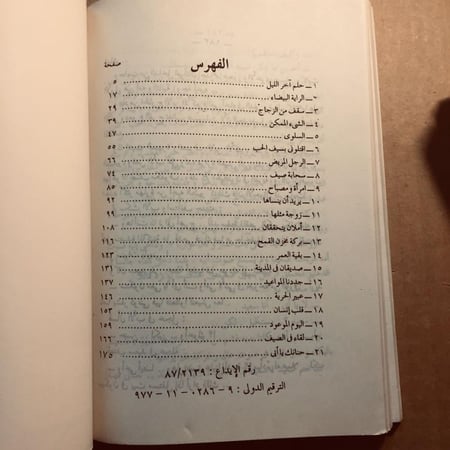 الفهرس
صفحة
١ ــ حلم آخر الليل ٥
٢ ــ الراية البيضاء ١٧
٣ ــ سقف من الزجاج ٢٩
٤ ــ الشىء الممكن ٣٩
٥ ــ السلوى ٤٧
٦ ــ اقتلونى بسيف الحب ٥٦
٧ ــ الرجل المريض ٦٦
٨ ــ سحابة صيف ٧٤
٩ ــ امرأة ومصباح ٨٥
١٠ ــ يريد أن ينساها ٩٢
١١ ــ زوجة مثلها ٩٩
١٢ ــ أملان يتحققان ١٠٨
١٣ ــ بركة مخزن القمح ١١٦
١٤ ــ بقية العمر ١٢٣
١٥ ــ صديقان فى المدينة ١٣١
١٦ ــ حددنا المواعيد ١٣٧
١٧ ــ عبير الحرية ١٤٦
١٨ ــ قلب إنسان ١٥٣
١٩ ــ اليوم الموعود ١٥٩
٢٠ ــ لقاء فى الصيف ١٦٦
٢١ ــ حنانك يا أبى ١٧٥
رقم الإيداع : ٨٧/٢١٣٩
الترقيم الدولى : ٩ ــ ٠٢٨٦ ــ ١١ ــ ٩٧٧